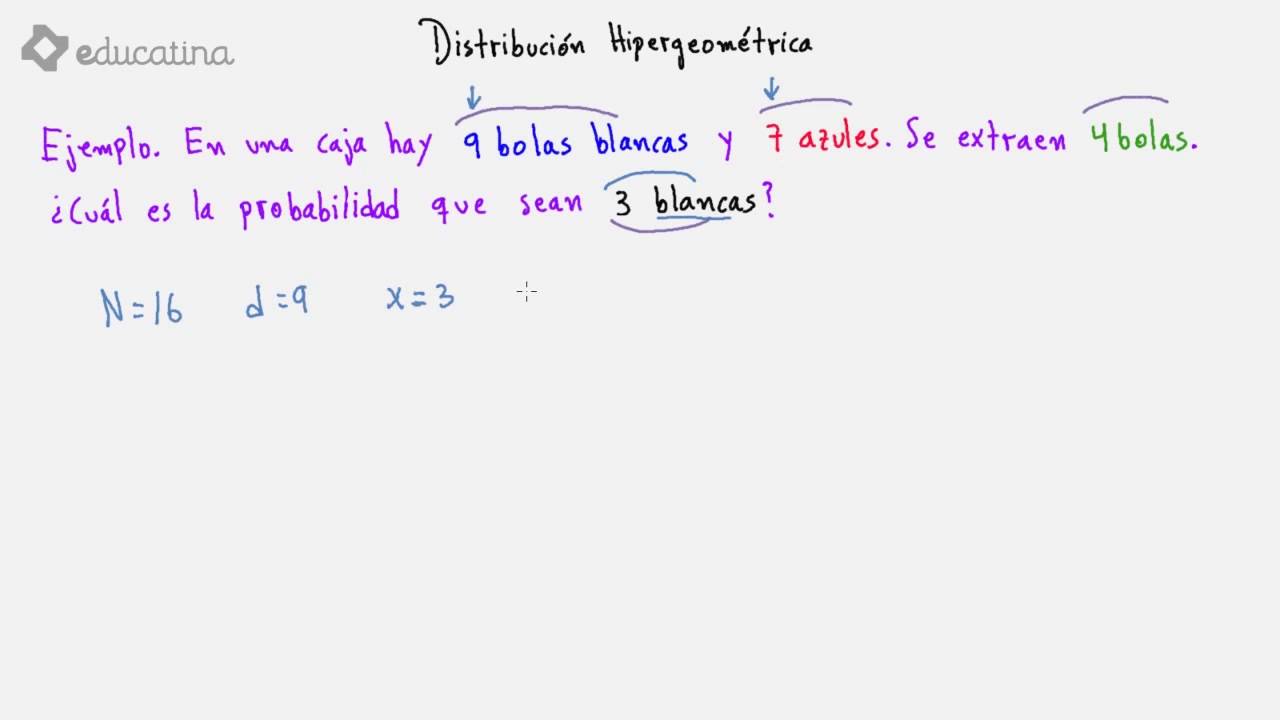 educatina
Distribución Hipergeométrica
Ejemplo. En una caja hay 9 bolas blancas y 7 azules. Se extraen 4 bolas.
¿Cuál es la probabilidad que sean 3 blancas?
N=16 d=9 x=3